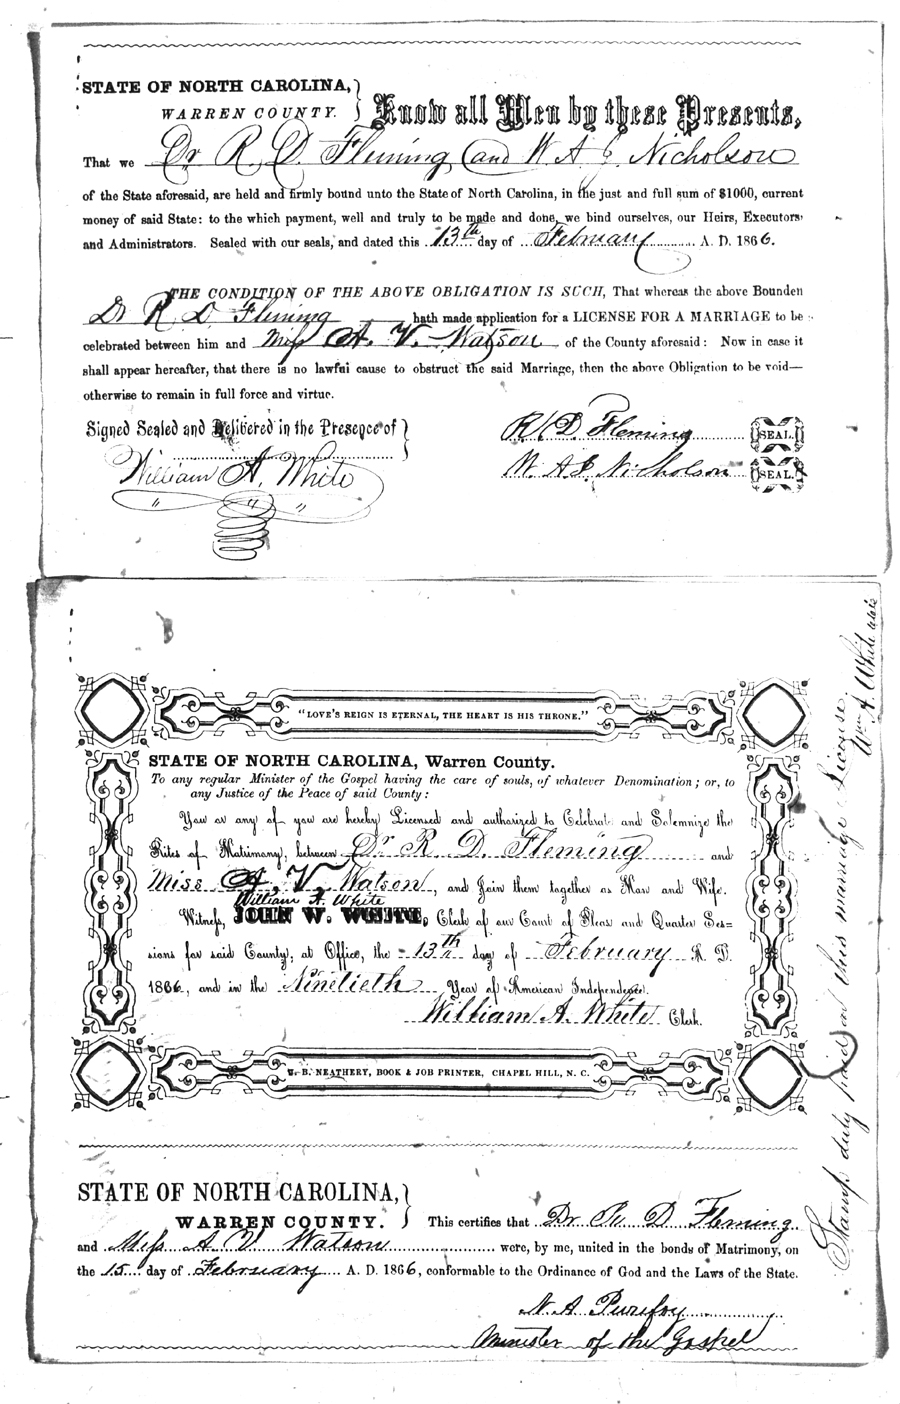 STATE OF NORTH CAROLINA,
WARREN COUNTY.
Know all Men by these Presents,
That we Dr R. D. Fleming and W. A. J. Nicholson
of the State aforesaid, are held and firmly bound unto the State of North Carolina, in the just and full sum of $1000, current
money of said State: to the which payment, well and truly to be made and done, we bind ourselves, our Heirs, Executors
and Administrators. Sealed with our seals, and dated this 13th day of February A. D. 1866.
THE CONDITION OF THE ABOVE OBLIGATION IS SUCH, That whereas the above Bounden
Dr R D. Fleming hath made application for a LICENSE FOR A MARRIAGE to be
celebrated between him and Miss A. V. Watson of the County aforesaid: Now in case it
shall appear hereafter, that there is no lawful cause to obstruct the said Marriage, then the above Obligation to be void—
otherwise to remain in full force and virtue.
Signed Sealed and Delivered in the Presence of
R. D. Fleming SEAL.
William A. White
W. A. J. Nicholson SEAL.
"LOVE'S REIGN IS ETERNAL, THE HEART IS HIS THRONE."
STATE OF NORTH CAROLINA, Warren County.
To any regular Minister of the Gospel having the care of souls, of whatever Denomination; or, to
any Justice of the Peace of said County:
You or any of you are hereby Licensed and authorized to Celebrate and Solemnize the
Rites of Matrimony, between Dr R. D. Fleming and
Miss A. V. Watson, and Join them together as Man and Wife.
William A. White
Witness, JOHN W. WHITE, Clerk of our Court of Pleas and Quarter Ses-
sions for said County, at Office, the 13th day of February A. D.
1866, and in the Ninetieth Year of American Independence.
William A. White Clerk.
W. B. NEATHERY, BOOK & JOB PRINTER, CHAPEL HILL, N. C.
Stamp duty paid on this marriage License.
Wm A. White
STATE OF NORTH CAROLINA,
WARREN COUNTY.
This certifies that Dr. R. D Fleming
and Miss A V Watson were, by me, united in the bonds of Matrimony, on
the 15 day of February A. D. 1866, conformable to the Ordinance of God and the Laws of the State.
N. A. Purefoy
Minister of the Gospel